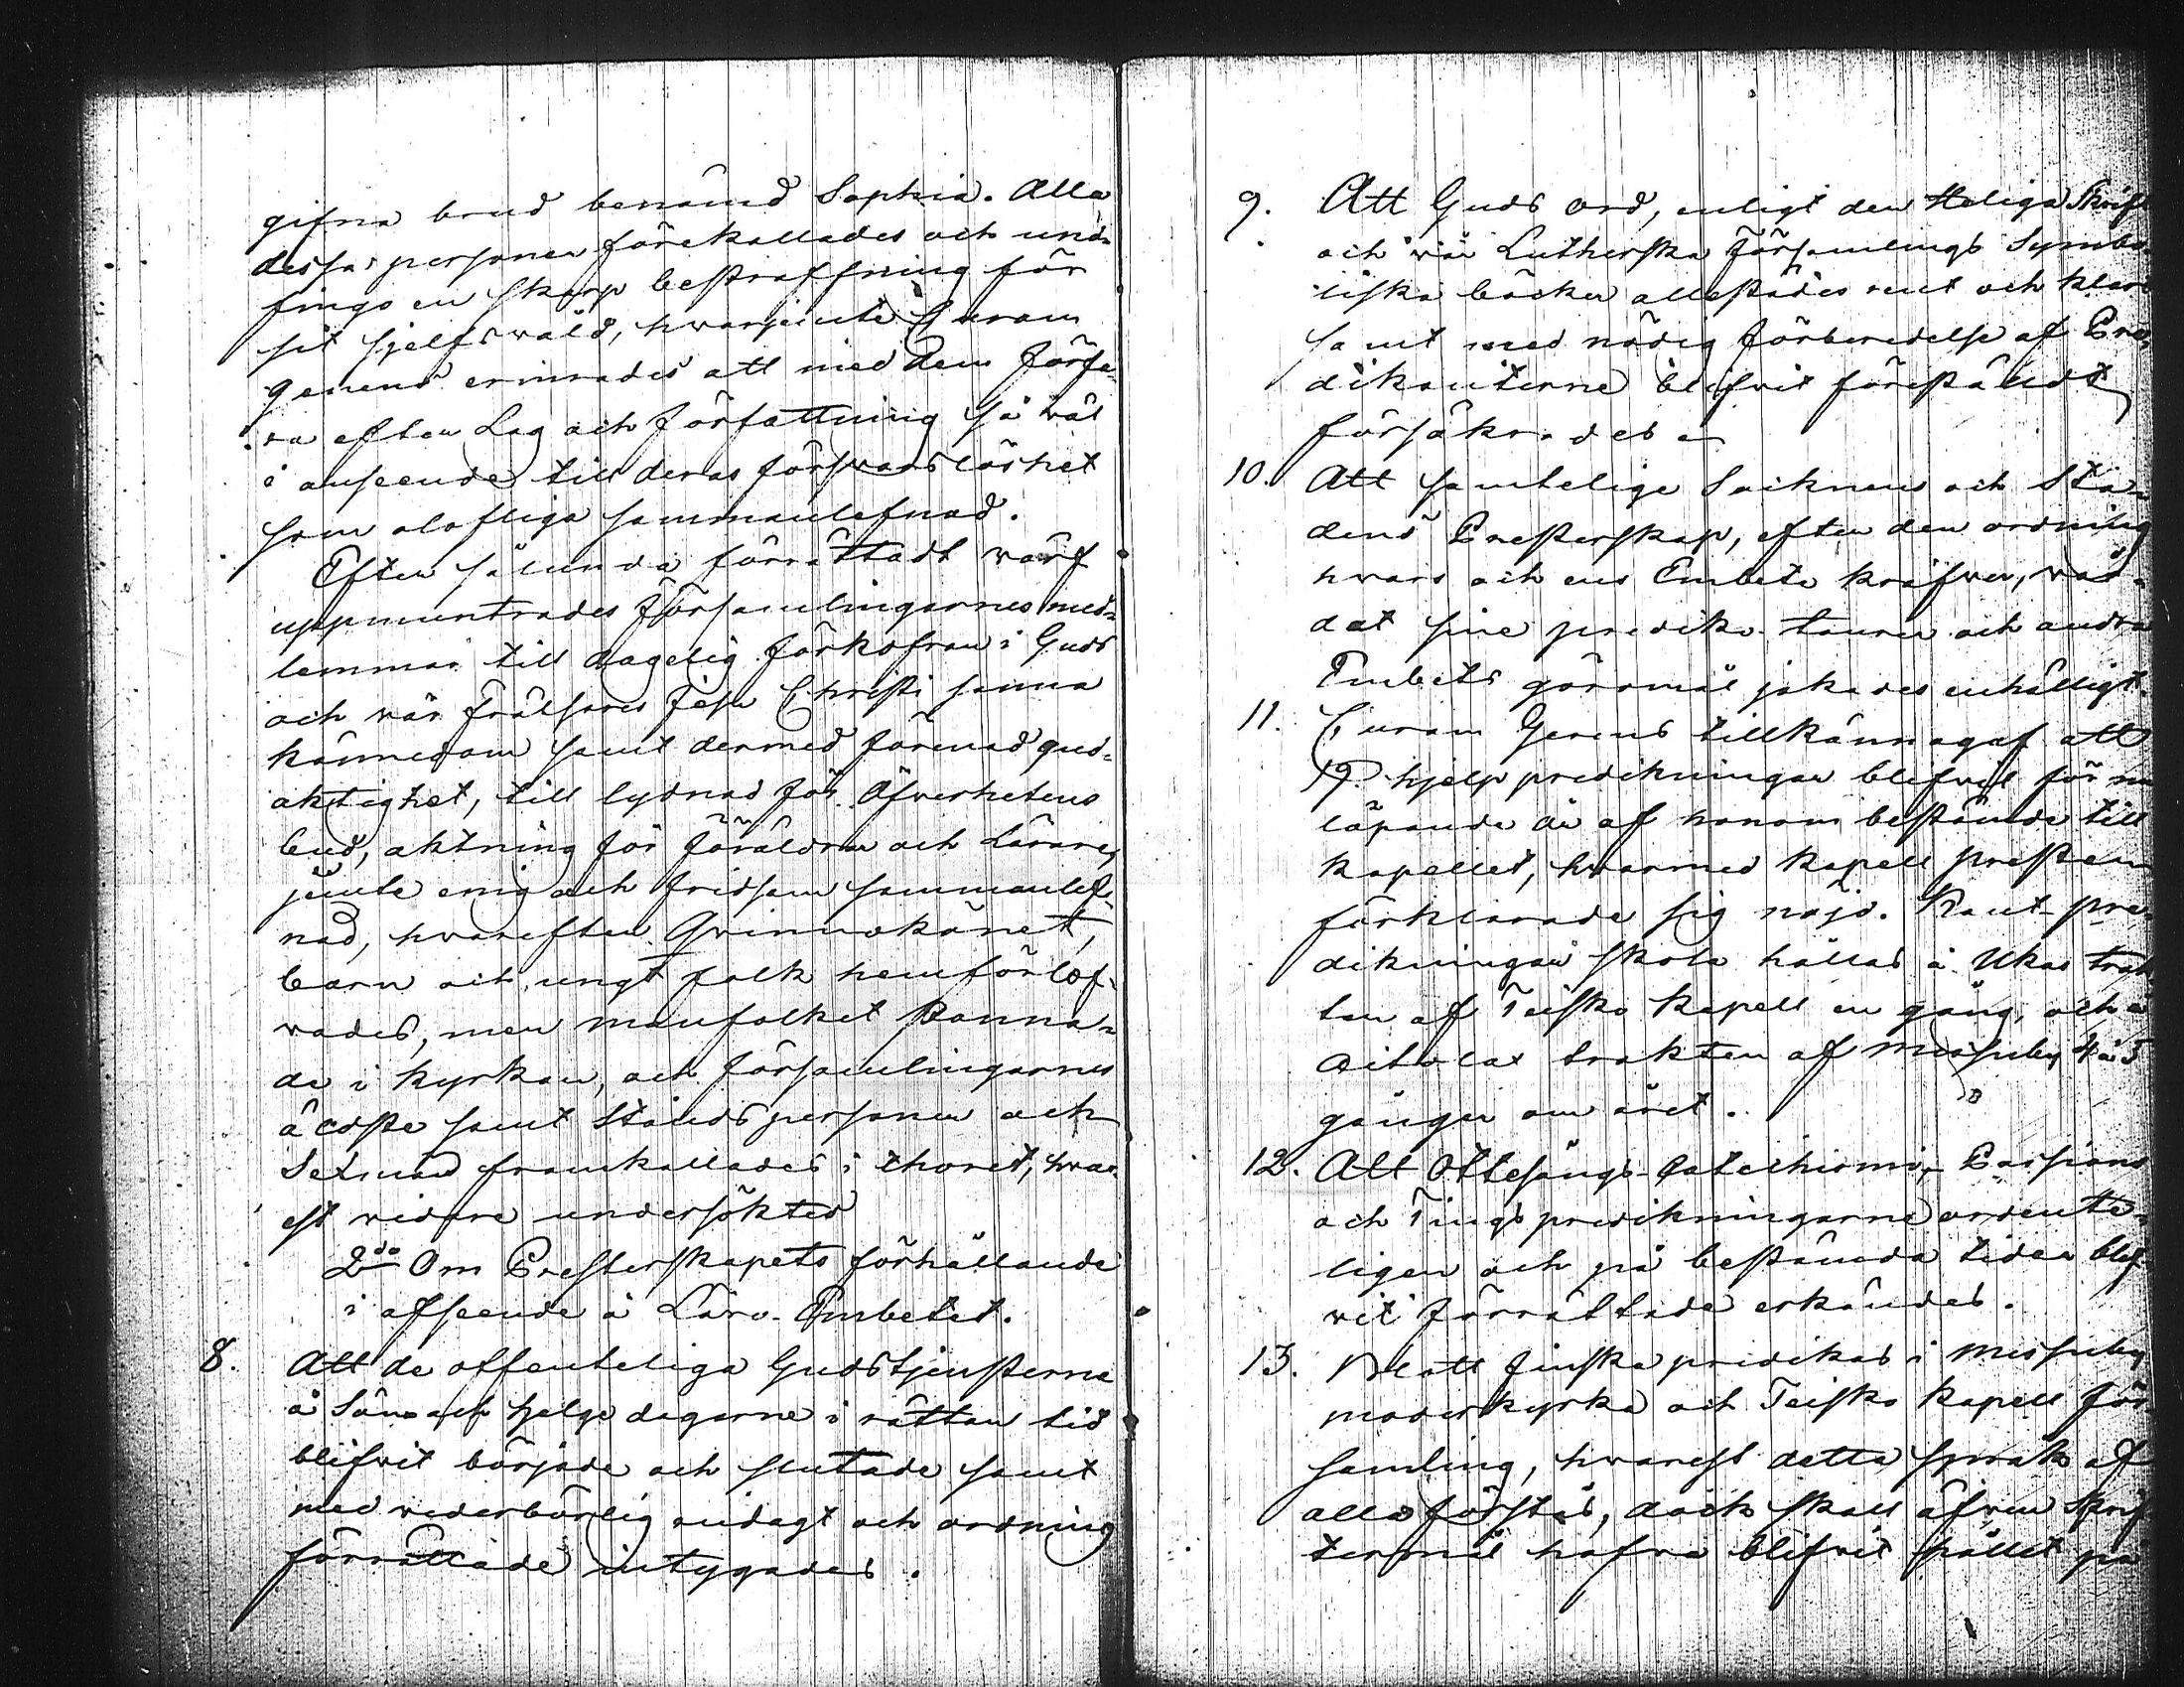 gifna brud benämd Sophia. Alla
dessa personer förekallades och und-
fingo en skarp bestraffning för
sit sjelfswåld, hwarjemte Curam
gerens erinrades att med dem förfa-
ra efter Lag och författning så wäl
i anseende till deras förswarslöshet
som olofliga sammanlefnad.
Efter sålunda förrättadt wärf
uppmuntrades församlingarnes med-
lemmar till dagelig förkofran i Guds
och wår Frälsares Jesu Christi sanna
kännedom samt dermed förenad gud-
aktighet, till lydnad för Öfwerhetens
bud, aktning för föräldrar och Lärare,
jemte enig och fridsam sammanlef-
nad, hwarefter Qwinnokönet,
barn och ungt folk hemförlof-
wades, men manfolket stanna-
de i kyrkan, och församlingarnes
äldste samt Ståndspersoner och
Sexmän framkallades i choret, hwar-
est widare undersöktes
2do Om Presterskapets förhållande
i afseende å Läro-Embetet.
8. Att de offenteliga Gudstjensterna
å Sön- och helgedagarne i rättan tid
blifwit började och slutade samt
med wederbörlig andagt och ordning
förrättade intygades.
9. Att Guds ord, enligt den Heliga Skrift
och wår Lutherska församlings Symbo-
liska böcker allestädes rent och klart
samt med nödig förberedelse af Pre-
dikanterne blifwit föreståndt
försäkrades
10. Att samtelige Socknens och Sta-
dens Presterskap, efter den ordning
hwars och ens Embete kräfwer, wår-
dat sine predikoturer och andra
Embets göromål jakades enhälligt.
11. Curam Gerens tillkännagaf att
19 hjelp predikningar blifwit för nu
löpande år af honom bestämde till
kapellet, hwarmed kapell presten
förklarade sig nöjd. Kant-pre-
dikningar skola hållas å Ukas trak-
ten af Teisko kapell en gång, och å
Aitolax trakten af Messuby 4 à 5
gånger om året.
12. Att Ottesångs-Catechismi-, Passions
och Tings predikningarne ordente-
ligen och på bestämda tider blif-
wit förrättade erkändes.
13. Blott finska predikas i Messuby
moderkyrka och Teisko kapell för-
samling, hwarest detta språk af
alla förstås, dock skall äfwen Skrif-
termål hafwa blifwit hållet på